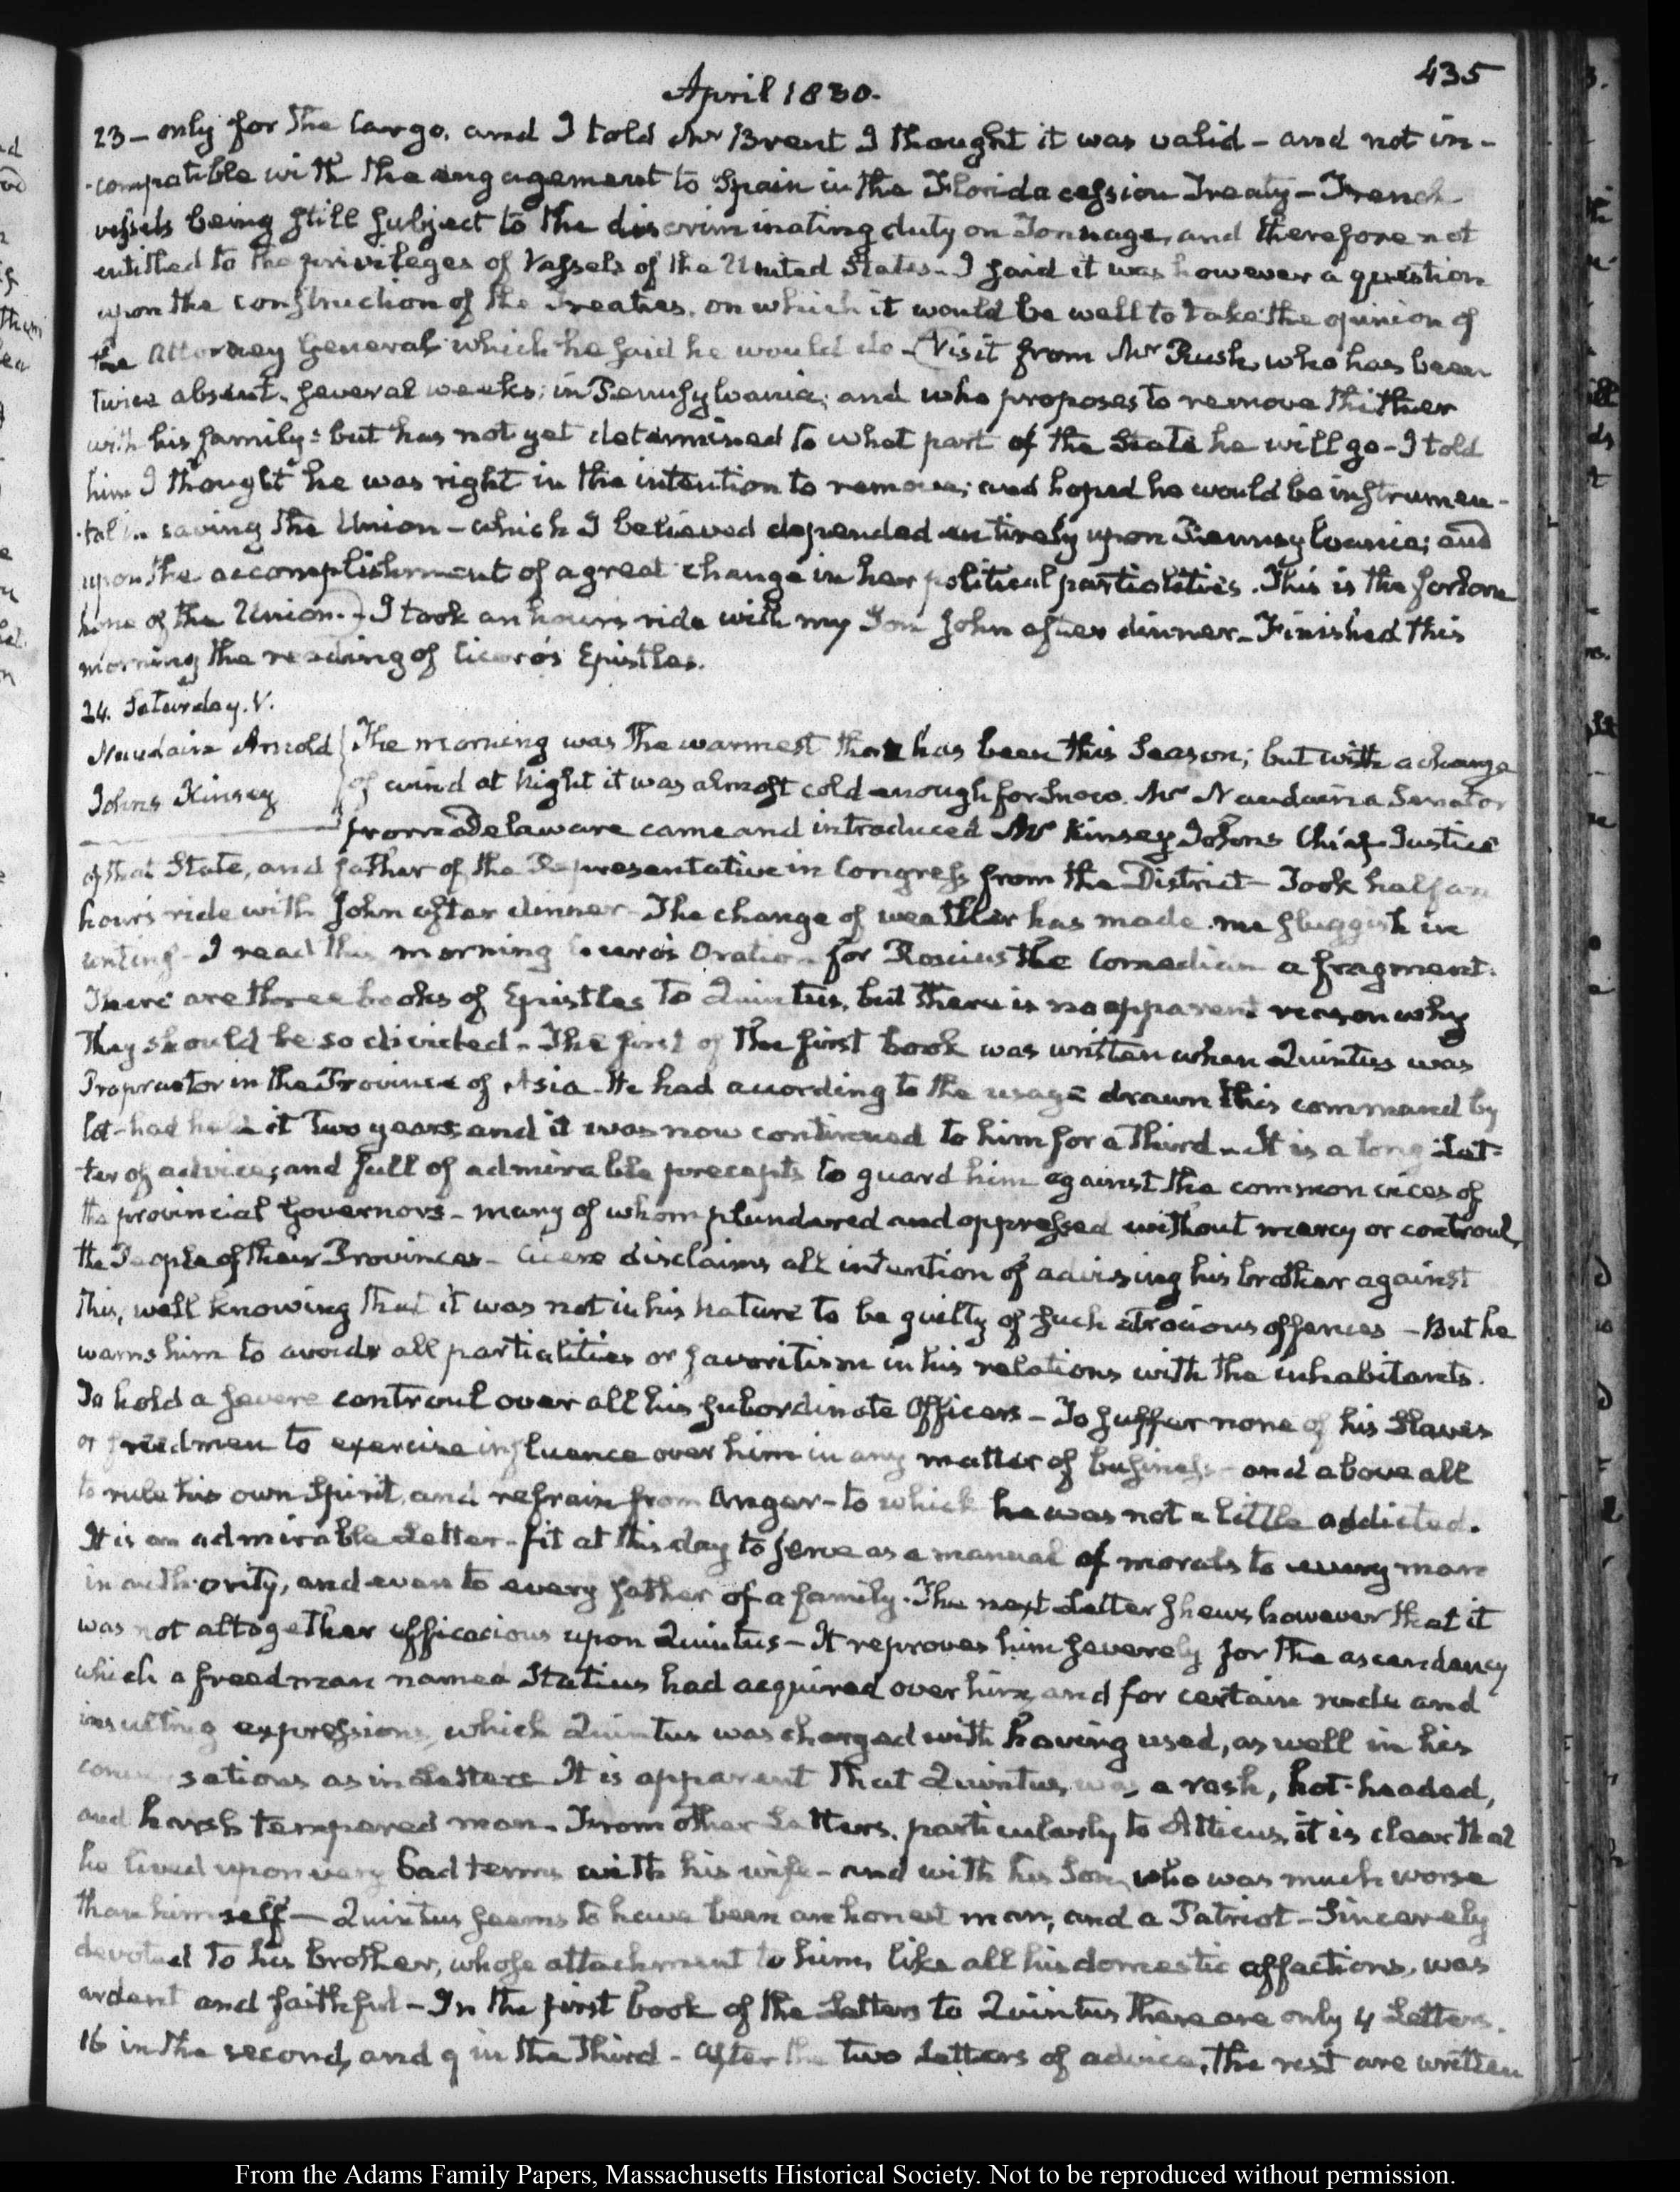 435
April 1830.
23 - only for the Cargo, and I told Mr Brent I thought it was valid - and not in-
-compatible with the engagement to Spain in the Florida cession Treaty - French
vessels being still subject to the discriminating duty on Tonnage, and therefore not
entitled to the privileges of Vessels of the United States - I said it was however a question
upon the construction of the Treaties, on which it would be well to take the opinion of
the Attorney General which he said he would do - (Visit from Mr Rush, who has been
twice absent, several weeks; in Pennsylvania; and who proposes to remove thither
with his family: but has not yet determined to what part of the State he will go - I told
him I thought he was right in the intention to remove; and hoped he would be instrumen-
-tal in saving the Union - which I believed depended entirely upon Pennsylvania; and
upon the accomplishment of a great change in her political partialities. This is the forlorn
hope of the Union.) - I took an hours ride with my Son John after dinner - Finished this
morning the reading of Cicero's Epistles.
24. Saturday. V.
Naudain Arnold
Johns Kinsey
The morning was the warmest that has been this Season; but with a change
of wind at Night it was almost cold enough for Snow. Mr Naudain a Senator
from Delaware came and introduced Mr Kinsey Johns Chief Justice
of that State, and father of the Representative in Congress from the District - Took half an
hour's ride with John after dinner - The change of weather has made me sluggish in
writing - I read this morning Cicero's Oration for Roscius the Comedian a fragment.
There are three books of Epistles to Quintus, but there is no apparent reason why
they should be so divided - The first of the first book was written when Quintus was
Propraetor in the Province of Asia - He had according to the usage drawn this command by
lot - had held it two years, and it was now continued to him for a third - It is a long Let-
ter of advice; and full of admirable precepts to guard him against the common vices of
the provincial Governors - many of whom plundered and oppressed without mercy or controul,
the People of their Provinces - Cicero disclaims all intention of advising his brother against
this, well knowing that it was not in his nature to be guilty of such atrocious offences - But he
warns him to avoid all partialities or favoritism in his relations with the inhabitants.
To hold a severe controul over all his subordinate Officers - To suffer none of his Slaves
or freedmen to exercise influence over him in any matter of business - and above all
to rule his own Spirit, and refrain from Anger - to which he was not a little addicted.
It is an admirable Letter - fit at this day to serve as a manual of morals to every man
in authority, and even to every father of a family. The next Letter shews however that it
was not altogether efficacious upon Quintus - It reproves him severely for the ascendancy
which a freedman named Statius had acquired over him, and for certain rude and
insulting expressions, which Quintus was charged with having used, as well in his
conversations as in Letters It is apparent that Quintus, was a rash, hot-headed,
and harsh tempered man - From other Letters, particularly to Atticus, it is clear that
he lived upon very bad terms with his wife - and with his Son, who was much worse
than himself - Quintus seems to have been an honest man, and a Patriot - Sincerely
devoted to his brother, whose attachment to him, like all his domestic affections, was
ardent and faithful - In the first book of the Letters to Quintus there are only 4 Letters.
16 in the second, and 9 in the third - After the two Letters of advice, the rest are written
From the Adams Family Papers, Massachusetts Historical Society. Not to be reproduced without permission.